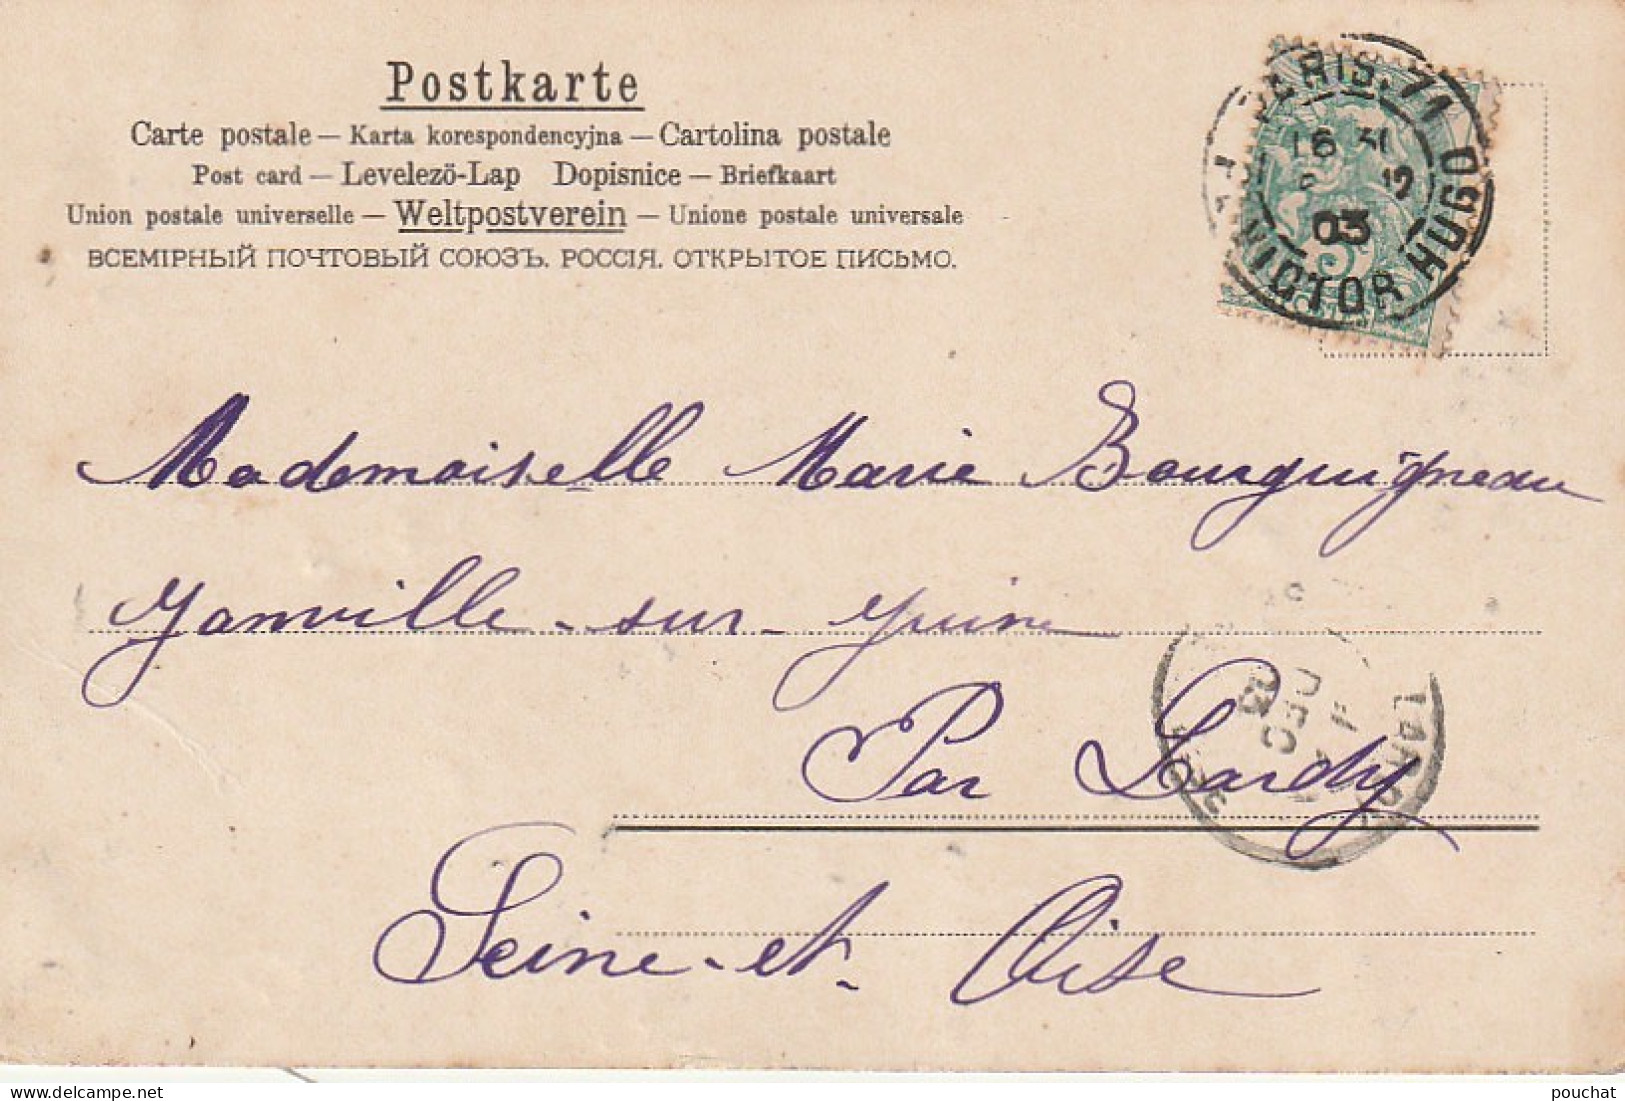 Postkarte
Carte postale — Karta korespondencyjna — Cartolina postale
Post card — Levelező-Lap Dopisnice — Briefkaart
Union postale universelle — Weltpostverein — Unione postale universale
ВСЕМІРНЫЙ ПОЧТОВЫЙ СОЮЗЪ. РОССІЯ. ОТКРЫТОЕ ПИСЬМО.
PARIS. 71
16 30
03
VICTOR HUGO
Mademoiselle Marie Bourguigneau
Janville-sur-Juine
Par Lardy
Seine-et-Oise
LARDY
DEC
03
delcampe.net
pouchat